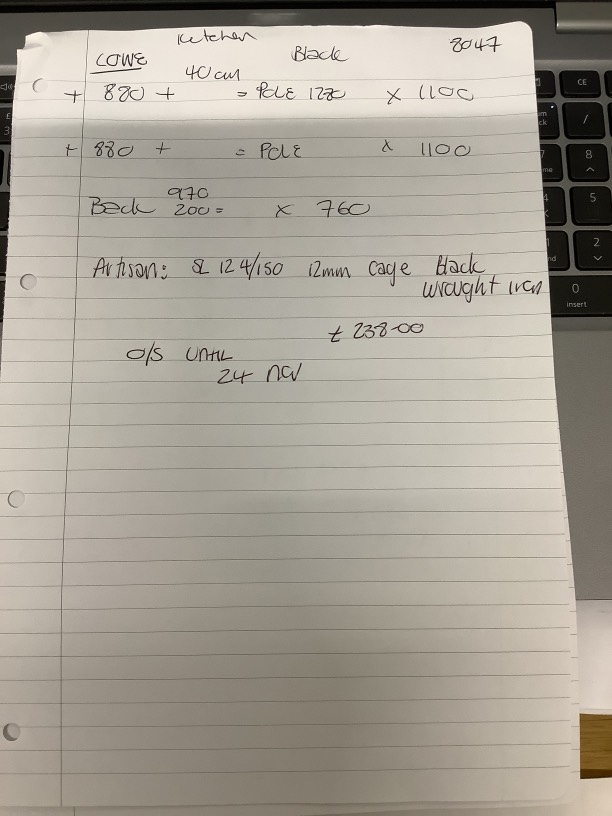 Kitchen
LOWE Black 8047
40cm
+ 880 + = POLE 1280 x 1100
+ 880 + = POLE x 1100
970
Back 200 = x 760
Artisan: SL 124/150 12mm Cage Black
wrought iron
£ 238-00
O/S UNTIL
24 NOV
CE
/
8
5
2
0
insert